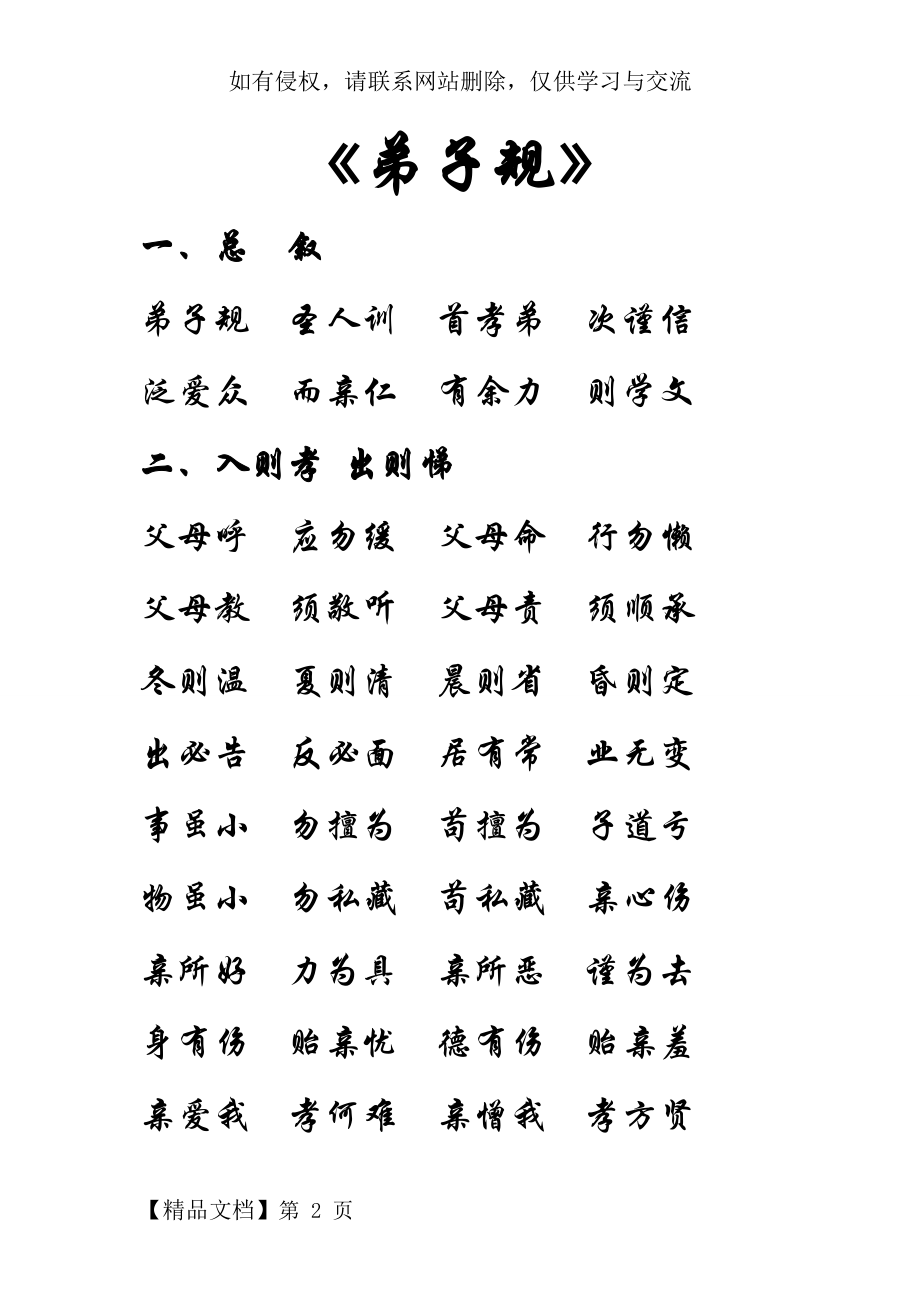 如有侵权，请联系网站删除，仅供学习与交流
《弟子规》
一、总　叙
弟子规　圣人训　首孝弟　次谨信
泛爱众　而亲仁　有余力　则学文
二、入则孝 出则悌
父母呼　应勿缓　父母命　行勿懒
父母教　须敬听　父母责　须顺承
冬则温　夏则清　晨则省　昏则定
出必告　反必面　居有常　业无变
事虽小　勿擅为　苟擅为　子道亏
物虽小　勿私藏　苟私藏　亲心伤
亲所好　力为具　亲所恶　谨为去
身有伤　贻亲忧　德有伤　贻亲羞
亲爱我　孝何难　亲憎我　孝方贤
【精品文档】第 2 页